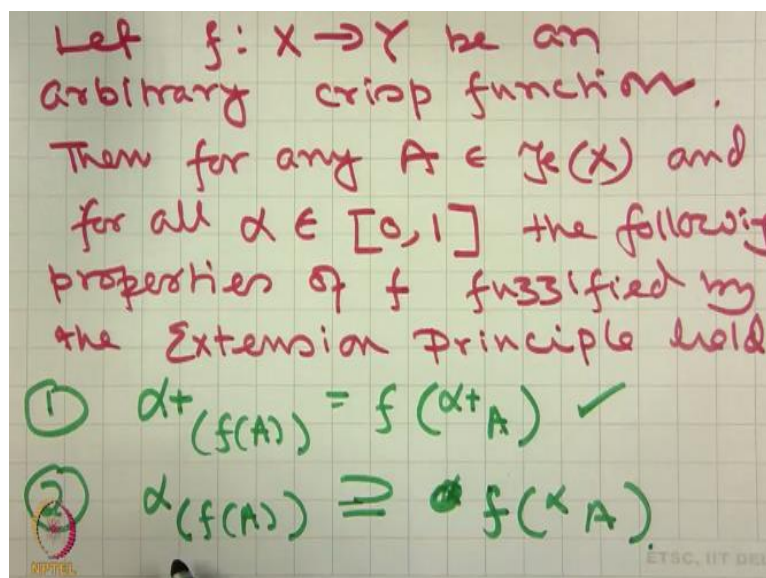 Let f : X → Y be an
arbitrary crisp function.
Then for any A ∈ Ƒ(X) and
for all α ∈ [0,1] the followig
properties of f fuzzified by
the Extension Principle hold
① α+(f(A)) = f(α+A) ✓
② α(f(A)) ⊇ f(αA).
NPTEL
ETSC, IIT DEL